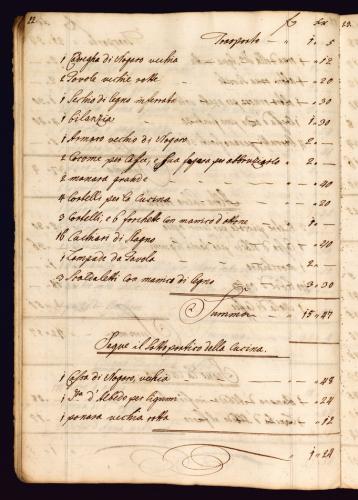 22
f xr
Trasporto — „ 1 „ 5
1 Cadregha di Nogaro vechia „ 12
2 Tavole vechie rotte „ 20
1 Sechio di legno inferrato „ 30
1 bilanzia „ 30
1 Armaro vechio di Nogaro 2 „ —
2 Cocome per Caffe, e sua per abbruggiarlo 2 „ —
2 manara grande „ 40
4 Cortelli per la Cucina „ 20
3 Cortelli, e 6 forchette con manico d'ottone 1 „ —
16 Cuchiari di Stagno „ 40
1 Lampade da Tavola 2 „ —
3 Scaldaletti con manico di legno 3 „ 30
Summa 15 „ 47
Segue il Sottoportico della Cucina.
1 Cassa di Nogaro, vechia „ 48
1 d'Albedo per legumi „ 24
1 ponara vechia rotta „ 12
1 „ 24
23.